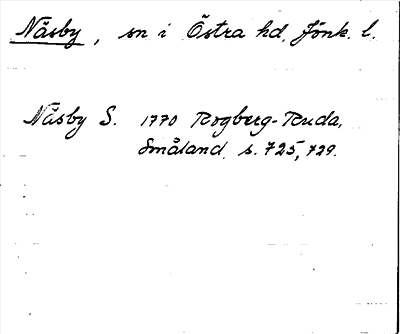 Näsby, sn i Östra hd. Jönk. l.
Näsby S. 1770 Rogberg-Ruda,
Småland. s. 725, 729.